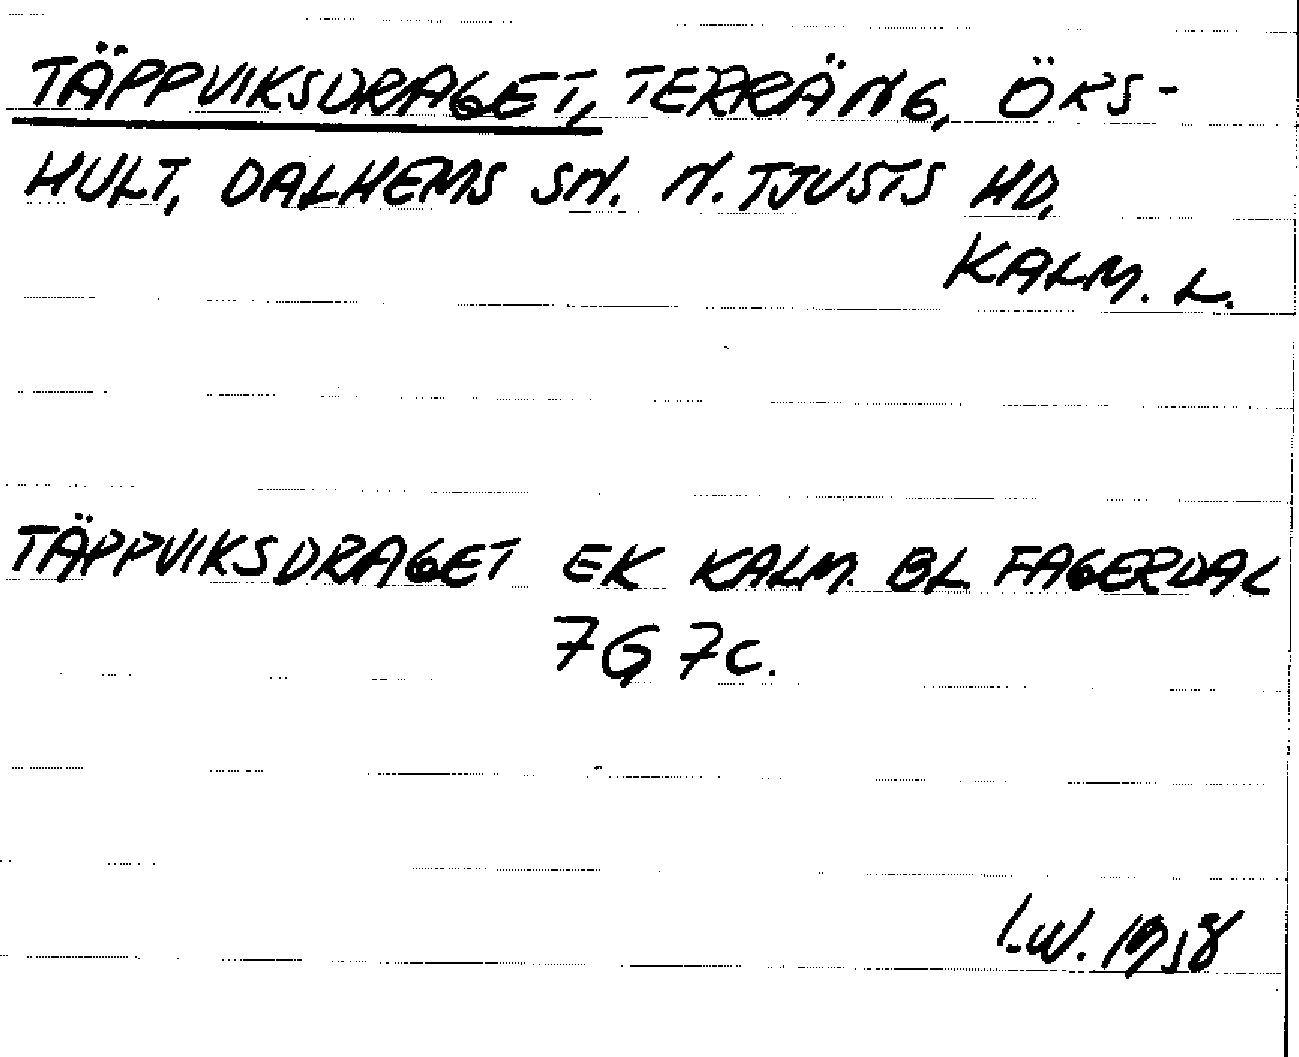 TÄPPVIKSDRAGET, TERRÄNG, ÖRS-
HULT, DALHEMS SN. N. TJUSTS HD,
KALM. L.
TÄPPVIKSDRAGET EK KALM. BL FAGERDAL
7G 7C.
I.W. 1958